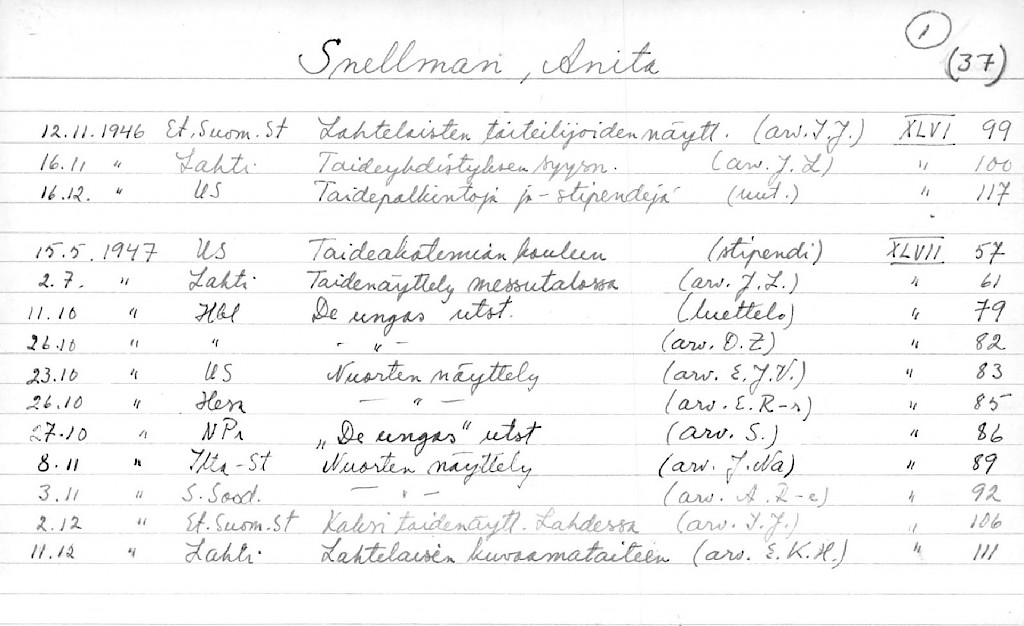 1
Snellman, Anita (37)
12.11.1946 Et. Suom. St Lahtelaisten taiteilijoiden näytt. (arv. J.J.) XLVI 99
16.11 " Lahti Taideyhdistyksen syysn. (arv. J. L) " 100
16.12. " US Taidepalkintoja ja -stipendejä (uut.) " 117
15.5. 1947 US Taideakatemian kouluun (stipendi) XLVII 57
2.7. " Lahti Taidenäyttely messutalossa (arv. J. L.) " 61
11.10 " Hbl De ungas utst. (luettelo) " 79
26.10 " " - " - (arv. O. Z) " 82
23.10 " US Nuorten näyttely (arv. E. J. V.) " 83
26.10 " Hesa - " - (arv. E. R-r) " 85
27.10 " NPr „De ungas" utst (arv. S.) " 86
8.11 " Ilta-St Nuorten näyttely (arv. J. Na) " 89
3.11 " S. Sosd. - " - (arv. A. R-e) " 92
2.12 " Et. Suom. St Kaksi taidenäytt. Lahdessa (arv. J. J.) " 106
11.12 " Lahti Lahtelaisen kuvaamataiteen (arv. E. K. H.) " 111